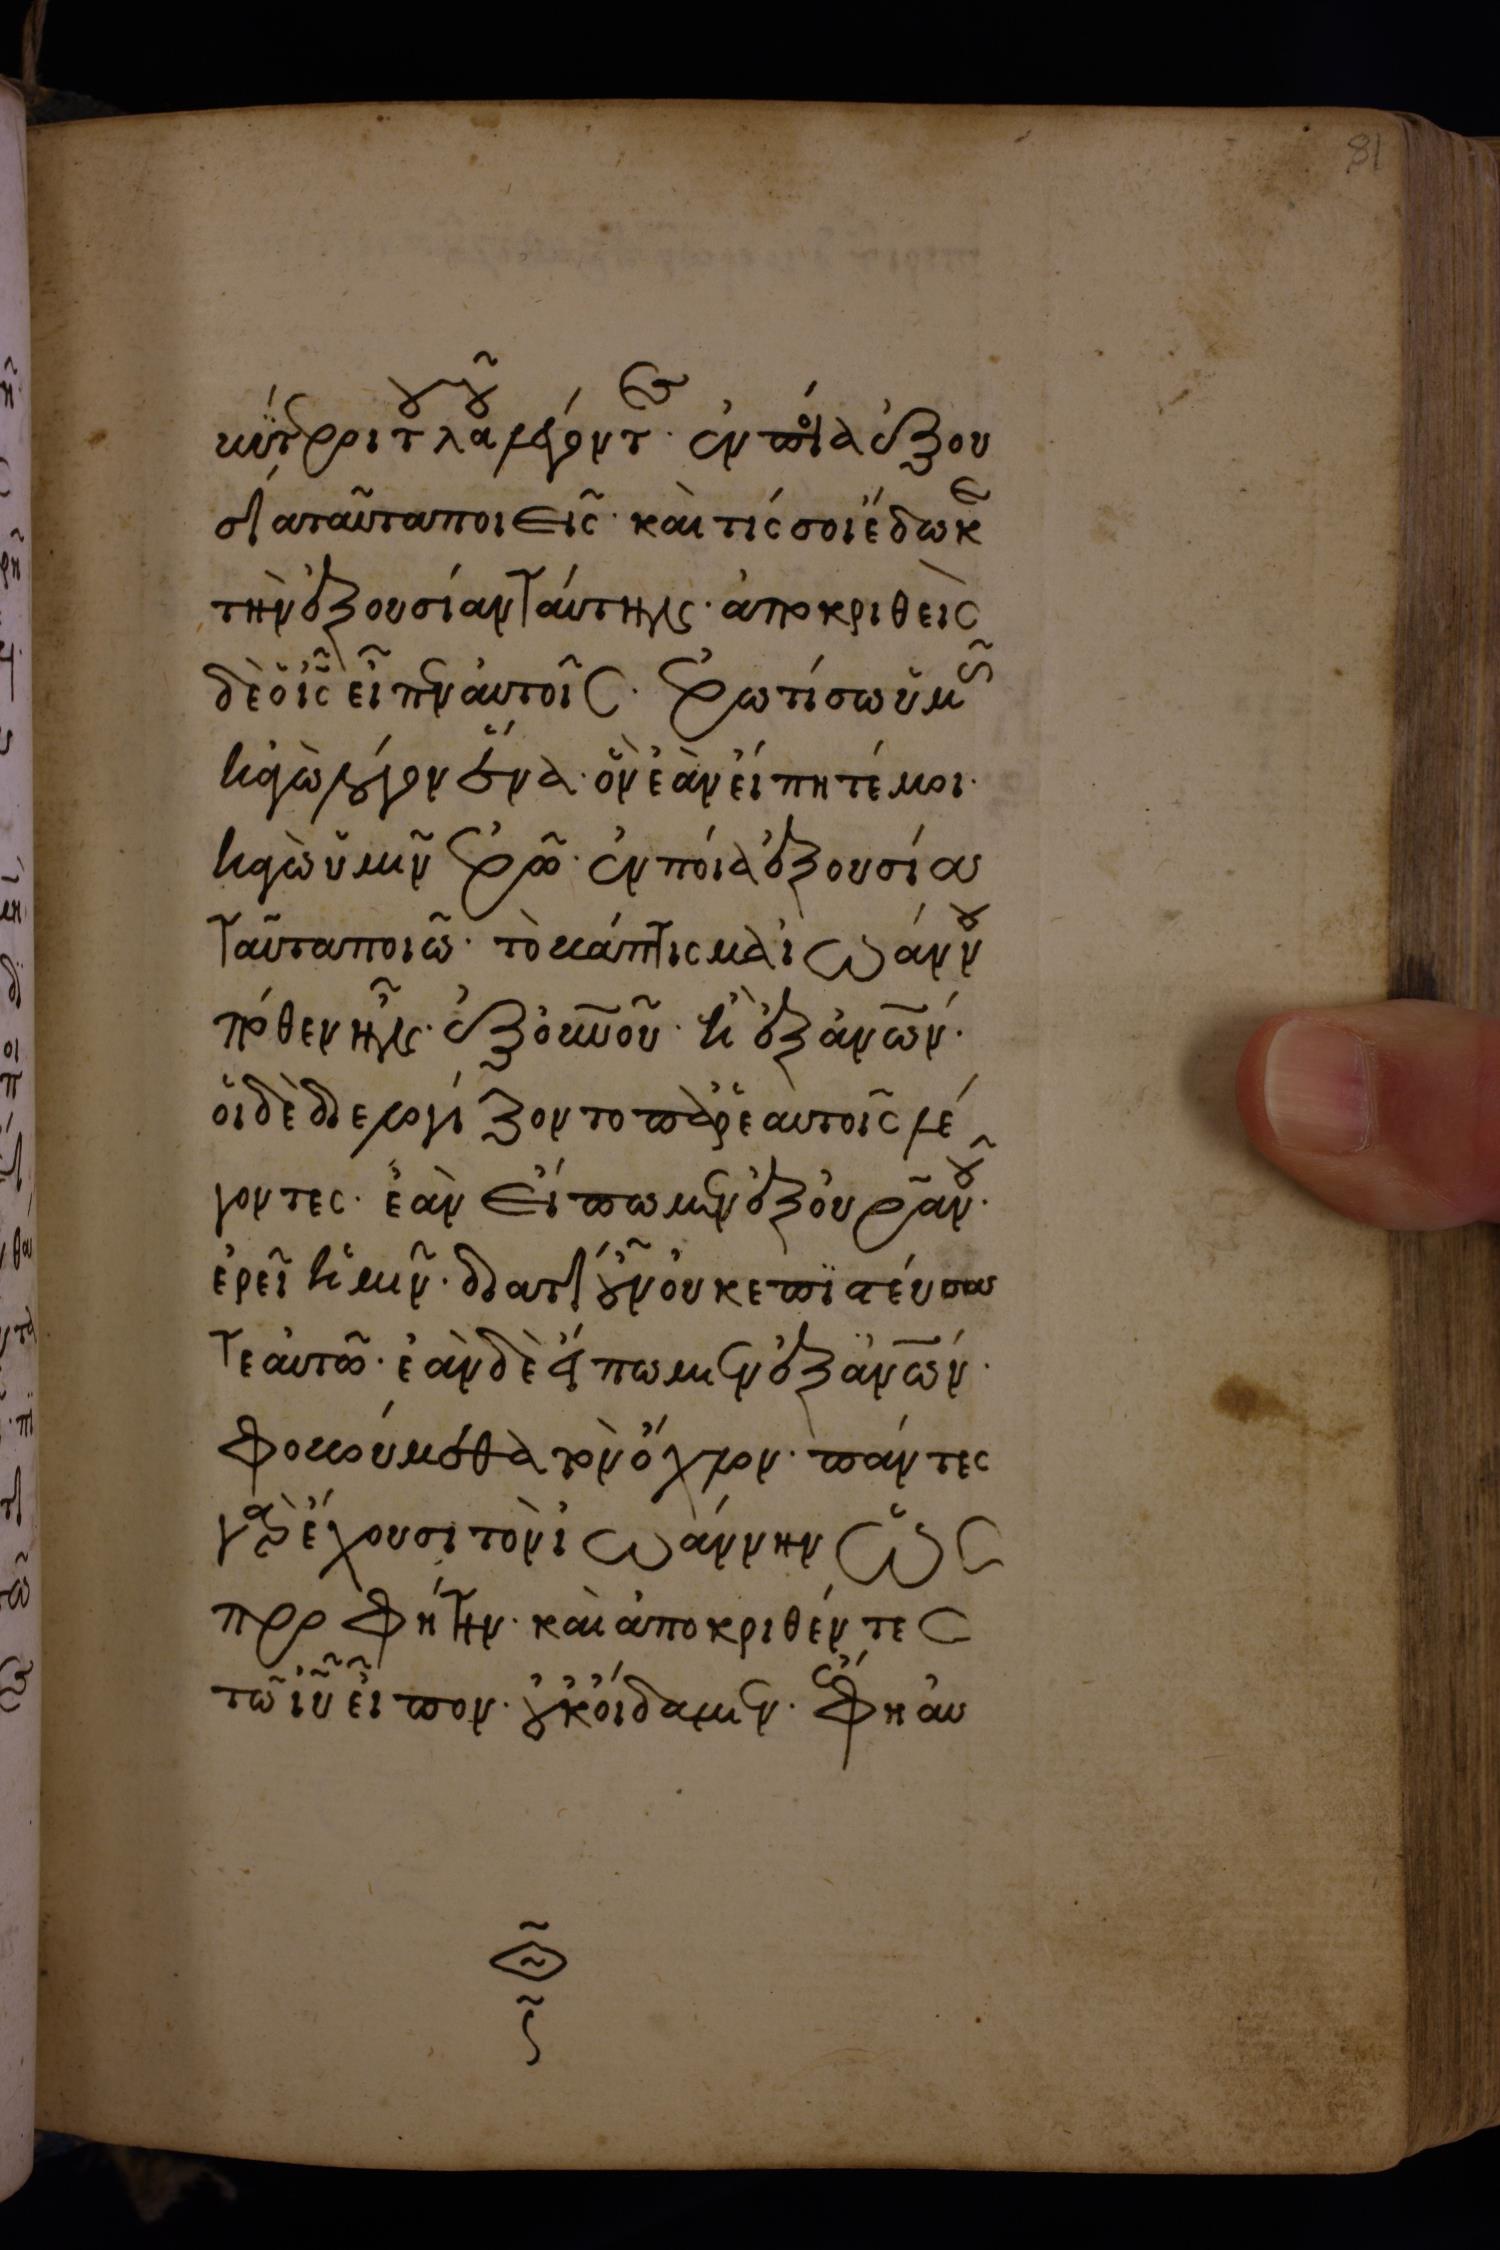 81
κύτεροι τοῦ λαοῦ λέγοντες· ἐν ποία ἐξου
σία ταῦτα ποιεῖς· καὶ τίς σοι ἔδωκε
τὴν ἐξουσίαν ταύτην· ἀποκριθεὶς
δὲ ὁ ἰς εἶπεν αὐτοῖς· ἐρωτίσω ὑμᾶς
κἀγὼ λόγον ἕνα· ὃν ἐὰν εἴπητέ μοι·
κἀγὼ ὑμῖν ἐρῶ· ἐν ποία ἐξουσία
ταῦτα ποιῶ· τὸ βάπτισμα ἰωάννου
πόθεν ἦν· ἐξ οὐνοῦ· ἢ ἐξ ἀνων·
οἱ δὲ διελογίζοντο παρ ἑαυτοῖς λέ
γοντες· ἐὰν εἴπωμεν ἐξ οὐρανοῦ·
ἐρεῖ ἡμῖν· διατί οὖν οὐκ ἐπιστεύσα
τε αὐτῶ· ἐὰν δὲ εἴπωμεν ἐξ ἀνων·
φοβούμεθα τὸν ὄχλον· πάντες
γὰρ ἔχουσι τὸν ἰωάννην ὡς
προφήτην· καὶ ἀποκριθέντες
τῶ ἰυ εἶπον· οὐκ οἴδαμεν· ἔφη αυ